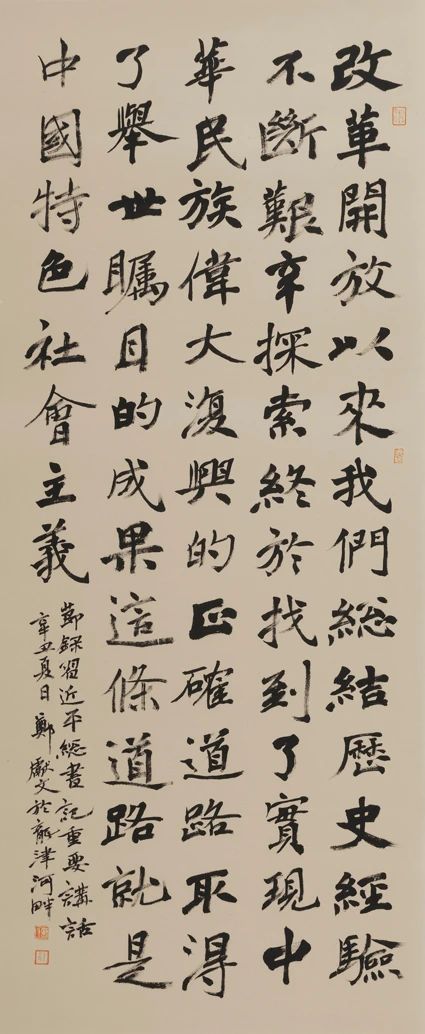 改革開放以來我們総結歷史經驗
不斷艱辛探索終於找到了實現中
華民族偉大復興的正確道路取得
了舉世矚目的成果這條道路就是
中國特色社會主義
節録習近平総書記重要講話
辛丑夏日鄭獻文於龍津河畔